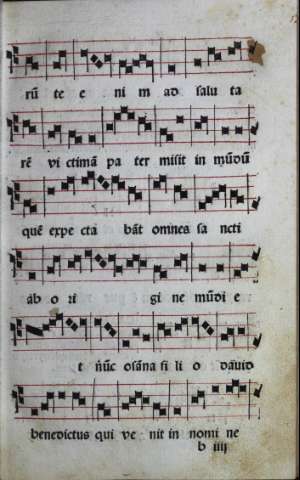 rū te e ni m ad salu ta
rē vi ctimā pa ter misit in mūdū
quē expe cta bāt omnes sa ncti
ab o ri gi ne mūdi e
t nūc osāna fi li o dauid
benedictus qui ve nit in nomi ne
b iiij